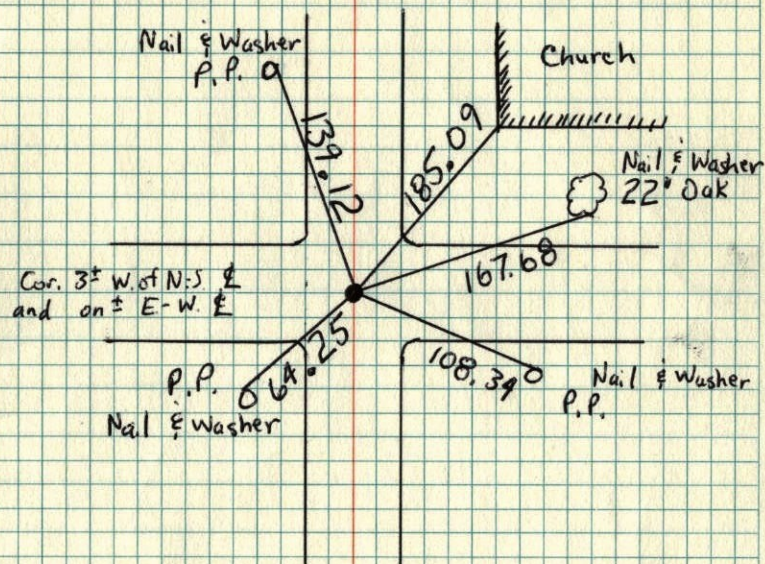 Nail & Washer
P.P.
Church
139.12
185.09
Nail & Washer
22" Oak
167.68
Cor. 3± W. of N-S. ℄
and on± E-W. ℄
64.25
108.34
P.P.
Nail & Washer
Nail & Washer
P.P.